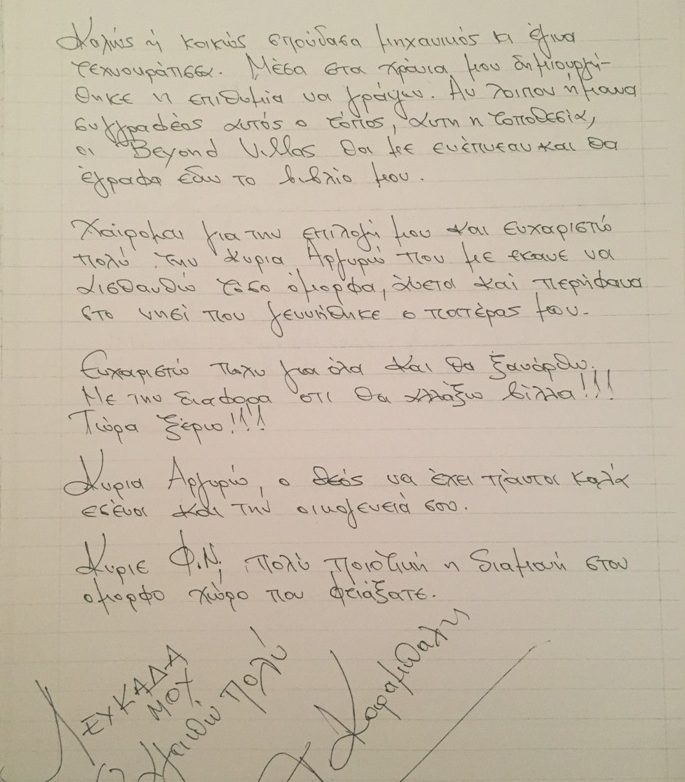 Καλώς ή κακώς σπούδασα μηχανικός κι έγινα
τεχνοκράτισσα. Μέσα στα χρόνια μου δημιουργή-
θηκε η επιθυμία να γράψω. Αν λοιπόν ήμουνα
συγγραφέας αυτός ο τόπος, αυτη η τοποθεσία,
οι Beyond Villas θα με ενέπνεαν και θα
έγραφα εδω το βιβλίο μου.
Χαίρομαι για την επιλογή μου και ευχαριστώ
πολύ την κυρια Αργυρώ που με εκανε να
αισθανθώ τόσο όμορφα, άνετα και περήφανα
στο νησί που γεννήθηκε ο πατέρας μου.
Ευχαριστώ πολυ για όλα και θα ξανάρθω.
Με την διαφορα ότι θα αλλάξω βίλλα!!!
Τώρα ξέρω!!!
Κυρια Αργυρώ, ο θεός να έχει πάντοτε καλά
εσένα και την οικογενειά σου.
Κύριε Φ.Ν. πολύ ποιοτική η διαμονή στον
ομορφο χώρο που φτιάξατε.
ΛΕΥΚΑΔΑ
ΜΟΥ
πολύ!